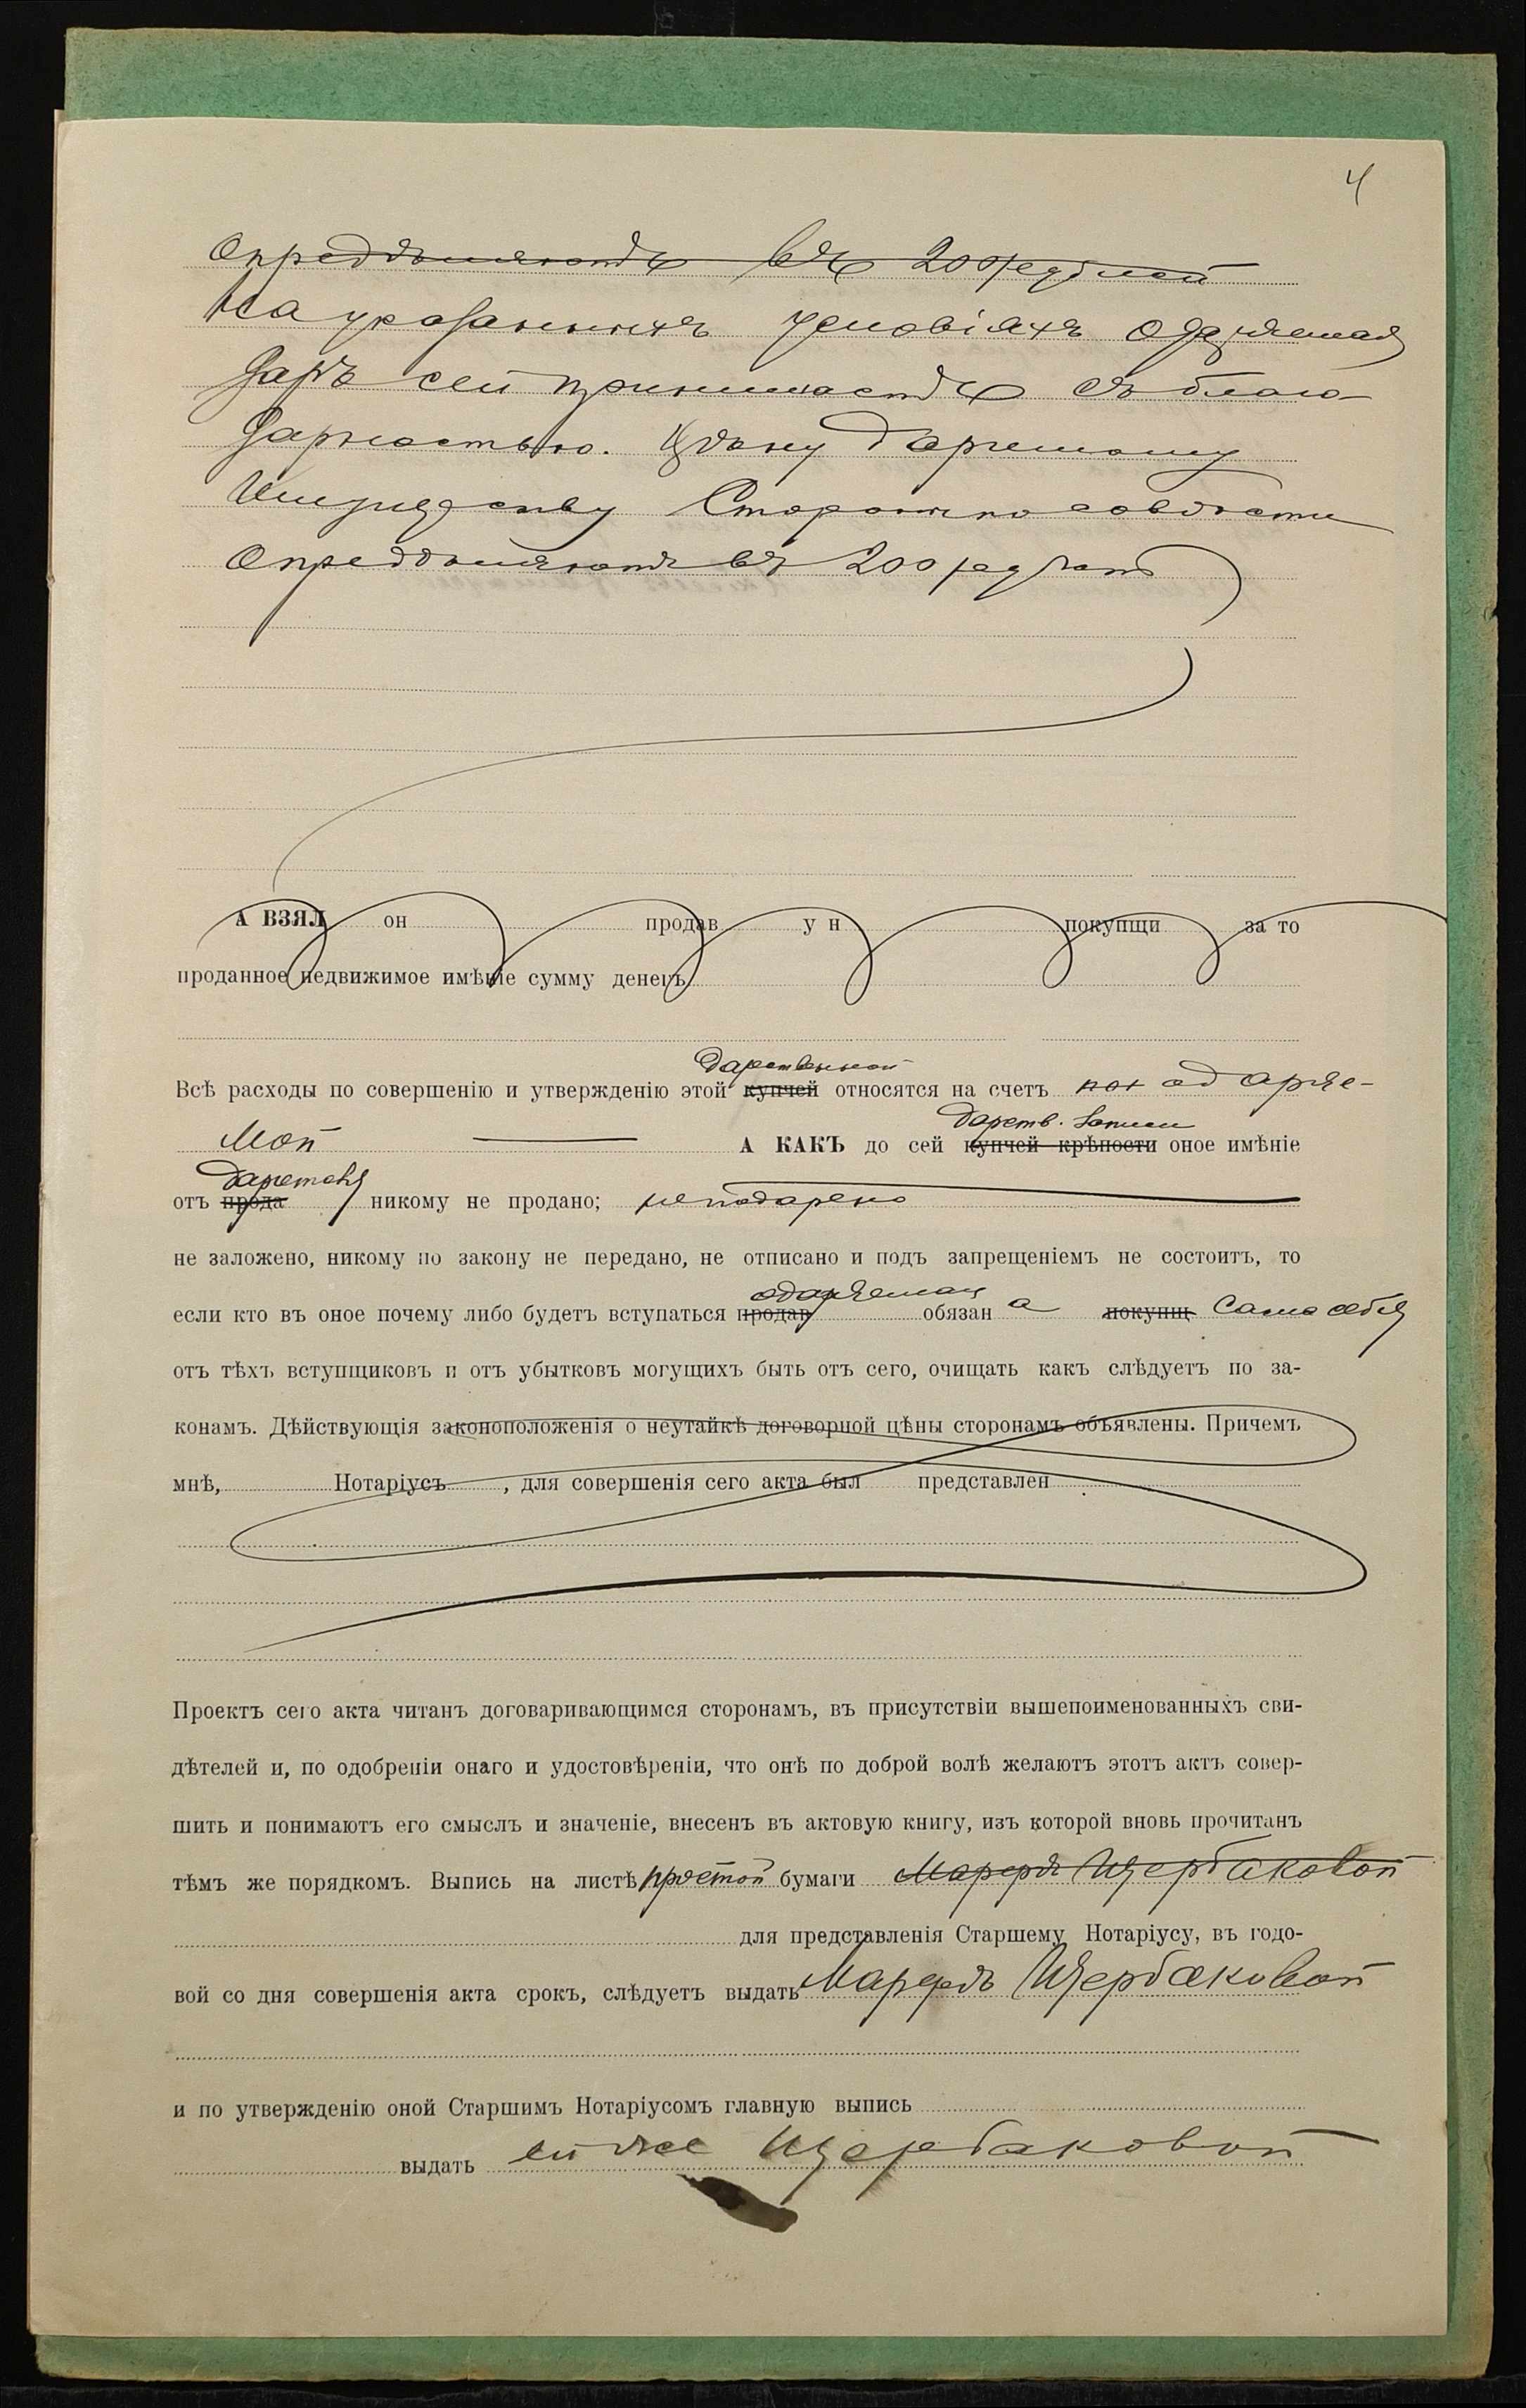 4
опредѣляютъ въ 200 рублей
На указанныхъ условіяхъ одаряемая
даръ сей принимаетъ съ благо-
дарностью. Цѣну даримому
имуществу Стороны по совѣсти
опредѣляютъ въ 200 рублей
А ВЗЯЛ он продав у н покупщи за то
проданное недвижимое имѣніе сумму денегъ
дарственной
Всѣ расходы по совершенію и утвержденію этой купчей относятся на счетъ одаряе-
дарств. записи
мой А КАКЪ до сей купчей крѣпости оное имѣніе
дарителя
отъ прода никому не продано; не подарено
не заложено, никому по закону не передано, не отписано и подъ запрещеніемъ не состоитъ, то
одаряемая
если кто въ оное почему либо будетъ вступаться продав обязан а покупщ сама себя
отъ тѣхъ вступщиковъ и отъ убытковъ могущихъ быть отъ сего, очищать какъ слѣдуетъ по за-
конамъ. Дѣйствующія законоположенія о неутайкѣ договорной цѣны сторонамъ объявлены. Причемъ
мнѣ, Нотаріусъ , для совершенія сего акта был представлен
Проектъ сего акта читанъ договаривающимся сторонамъ, въ присутствіи вышепоименованныхъ сви-
дѣтелей и, по одобреніи онаго и удостовѣреніи, что онѣ по доброй волѣ желаютъ этотъ актъ совер-
шить и понимаютъ его смыслъ и значеніе, внесенъ въ актовую книгу, изъ которой вновь прочитанъ
тѣмъ же порядкомъ. Выпись на листѣ простой бумаги Щербаковой
для представленія Старшему Нотаріусу, въ годо-
вой со дня совершенія акта срокъ, слѣдуетъ выдать Щербаковой
и по утвержденію оной Старшимъ Нотаріусомъ главную выпись
выдать ей же Щербаковой